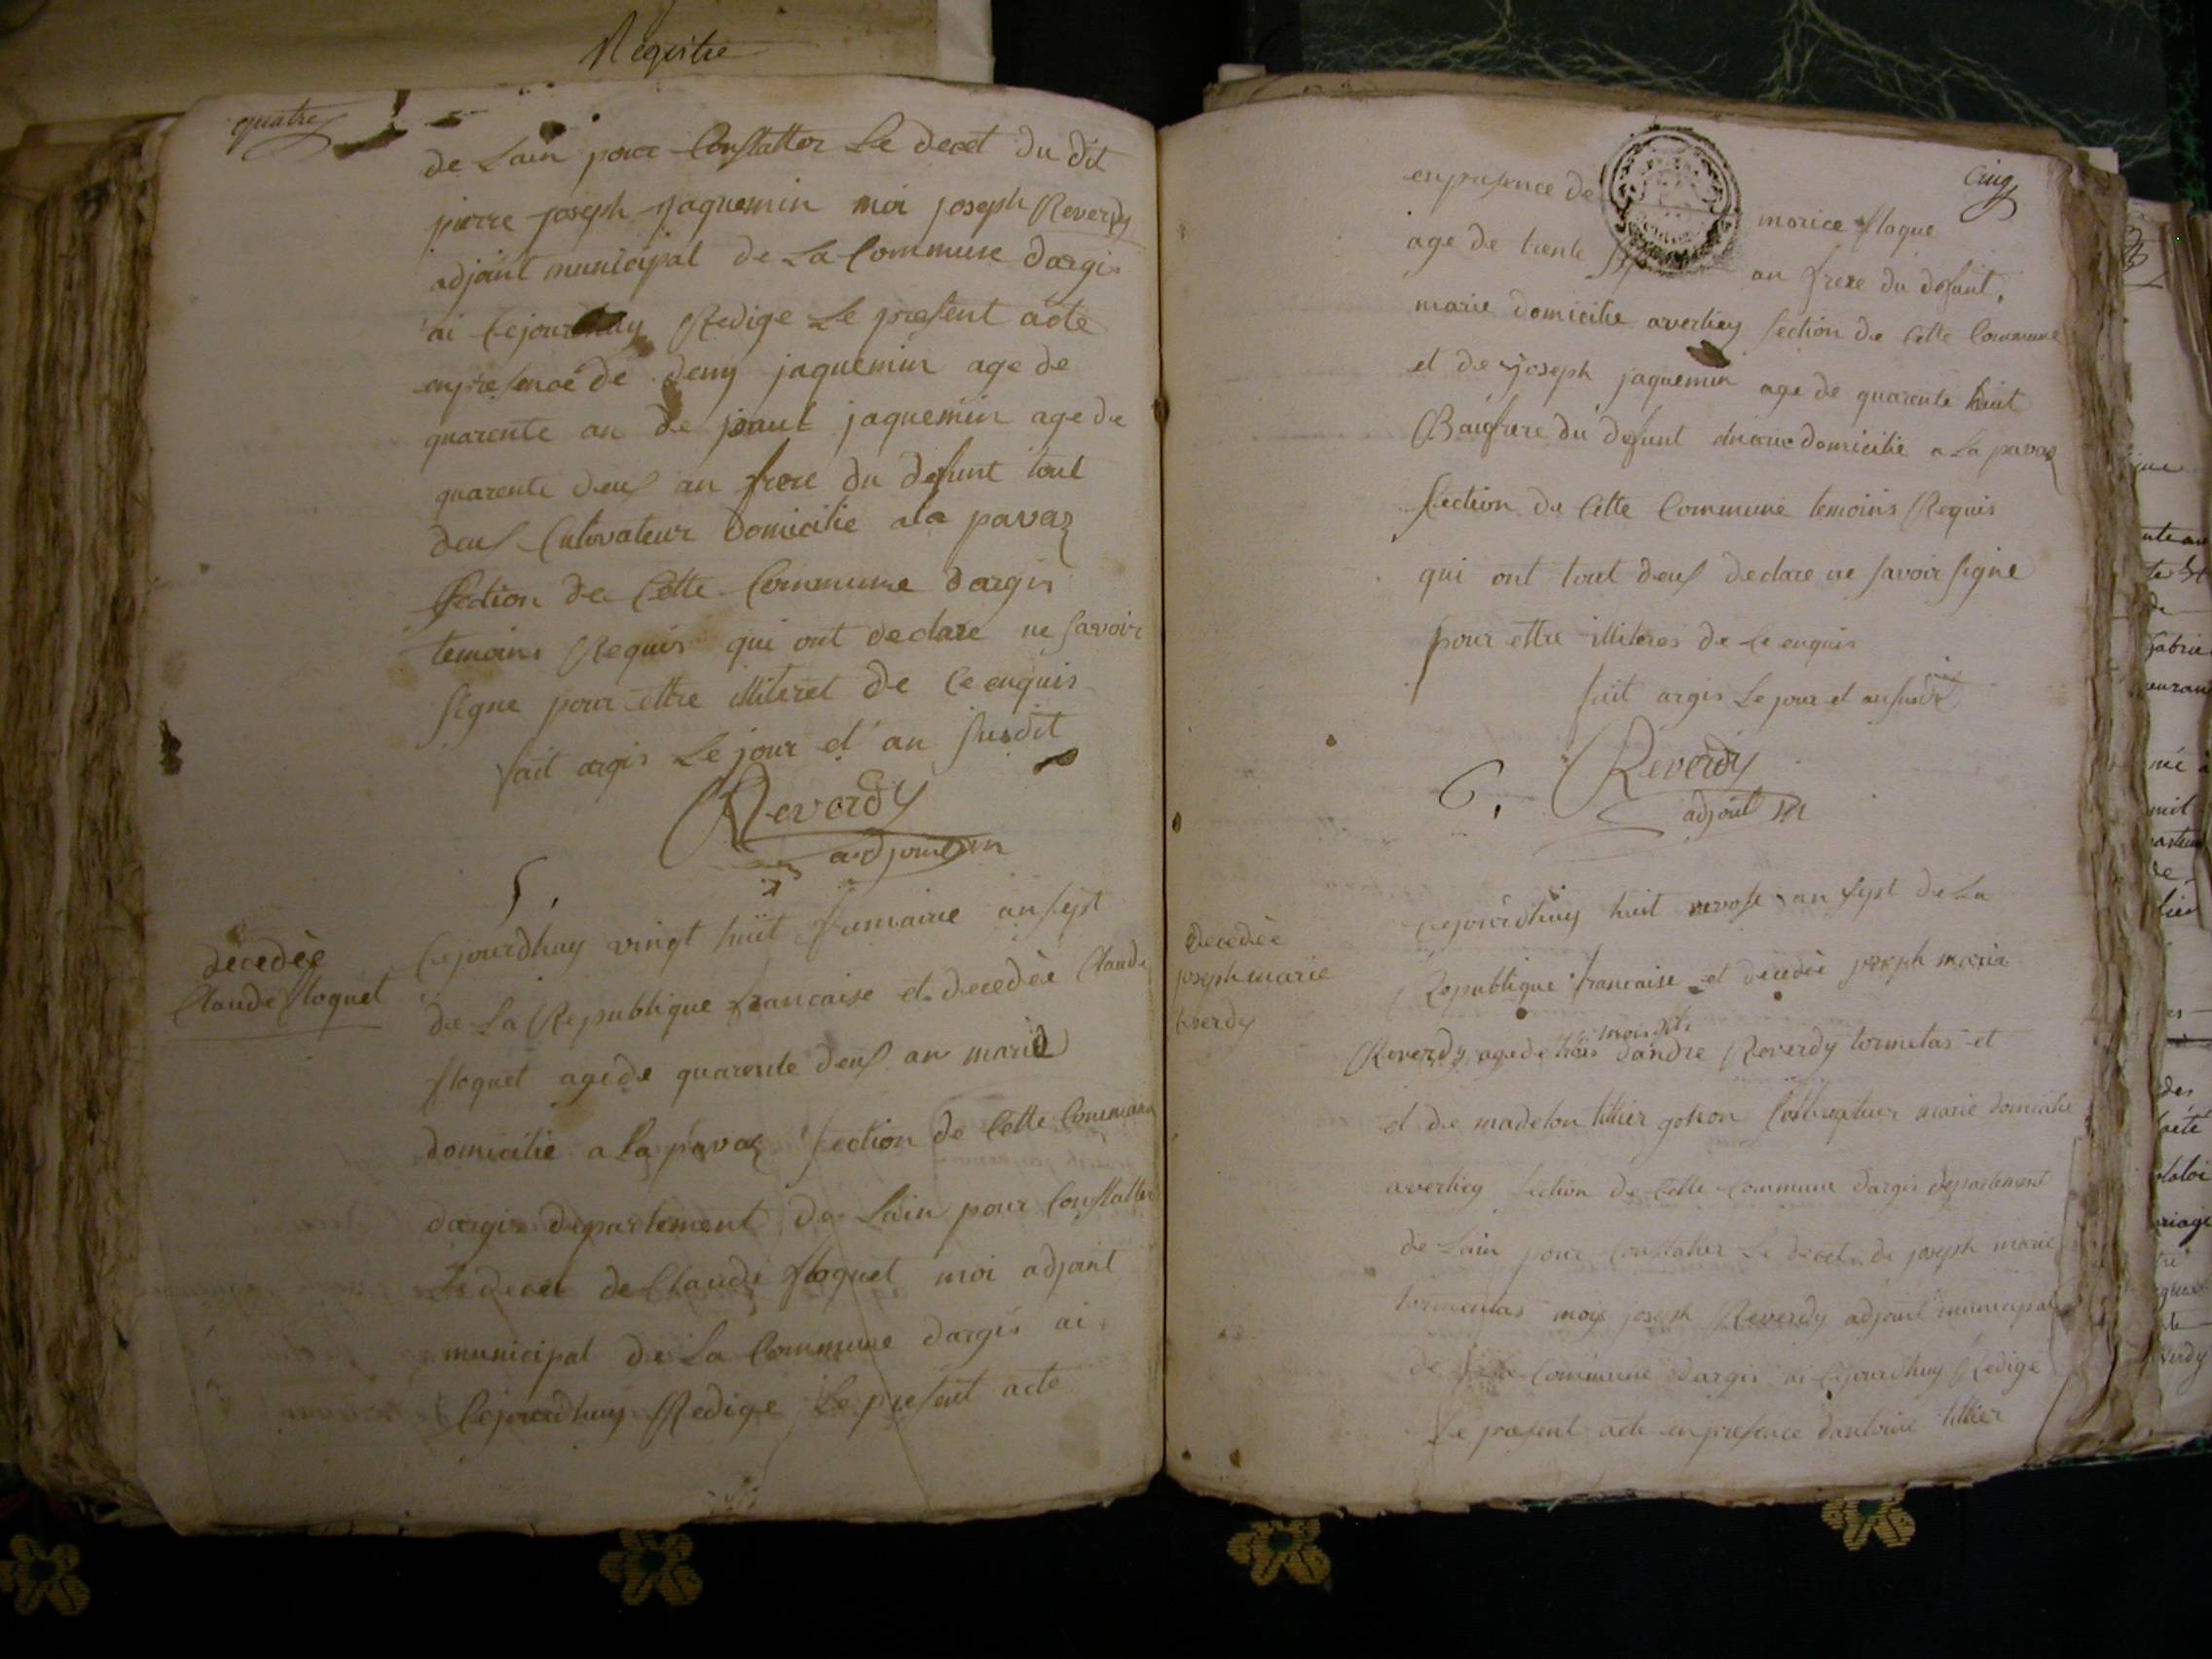 Registre
quatre
de Lain pour Constatter Le decet du dit
pierre joseph jaquemin moi joseph Reverdy
adjoint municipal de La Commune dargis
ai Cejourdhuy Redige Le present acte
enpresence de deny jaquemin age de
quarente an de paul jaquemin age de
quarente deus an frere du defunt tout
deus Cultivateur domicilie ala pavaz
section de Cette Commune dargis
temoins Requis qui ont declare ne savoir
signe pour ettre illiteret de Ce enquis
fait argis Le jour et an susdit
Reverdy
adjoint m
5.
decedèe
Claude floquet
Cejourdhuy vingt huit frimaire an sept
de La Republique francaise et decedèe Claude
floquet age de quarente deus an marie
domicilie a La pavaz section de Cette Commune
dargis departement de Lain pour Constatter
Le decet de Claude floquet moi adjoint
municipal de La Commune dargis ai
Cejourdhuy Redige Le present acte
Cinq
enpresence de morice floque
age de trente an frere du defunt
marie domicilie averliey section de Cette Commune
et de joseph jaquemin age de quarente huit
Baufrere du defunt marie domicilie a La pavaz
section de Cette Commune temoins Requis
qui ont tout deus declare ne savoir signe
pour ettre illiteres de Ce enquis
fait argis Le jour et an susdit
Reverdy
adjoint m
6.
Decedèe
joseph marie
Cejourdhuy huit nivose an sept de La
Republique francaise et decedèe joseph marie
mois
Reverdy age de trois dandre Reverdy tormetas et
et de madelon tillier Cultivateur marie domicilie
averliey section de Cette Commune dargis departement
de Lain pour Constatter Le decet de joseph marie
moi joseph Reverdy adjoint municipal
de La Commune dargis ai Cejourdhuy Redige
Le present acte enpresence dantoine tillier